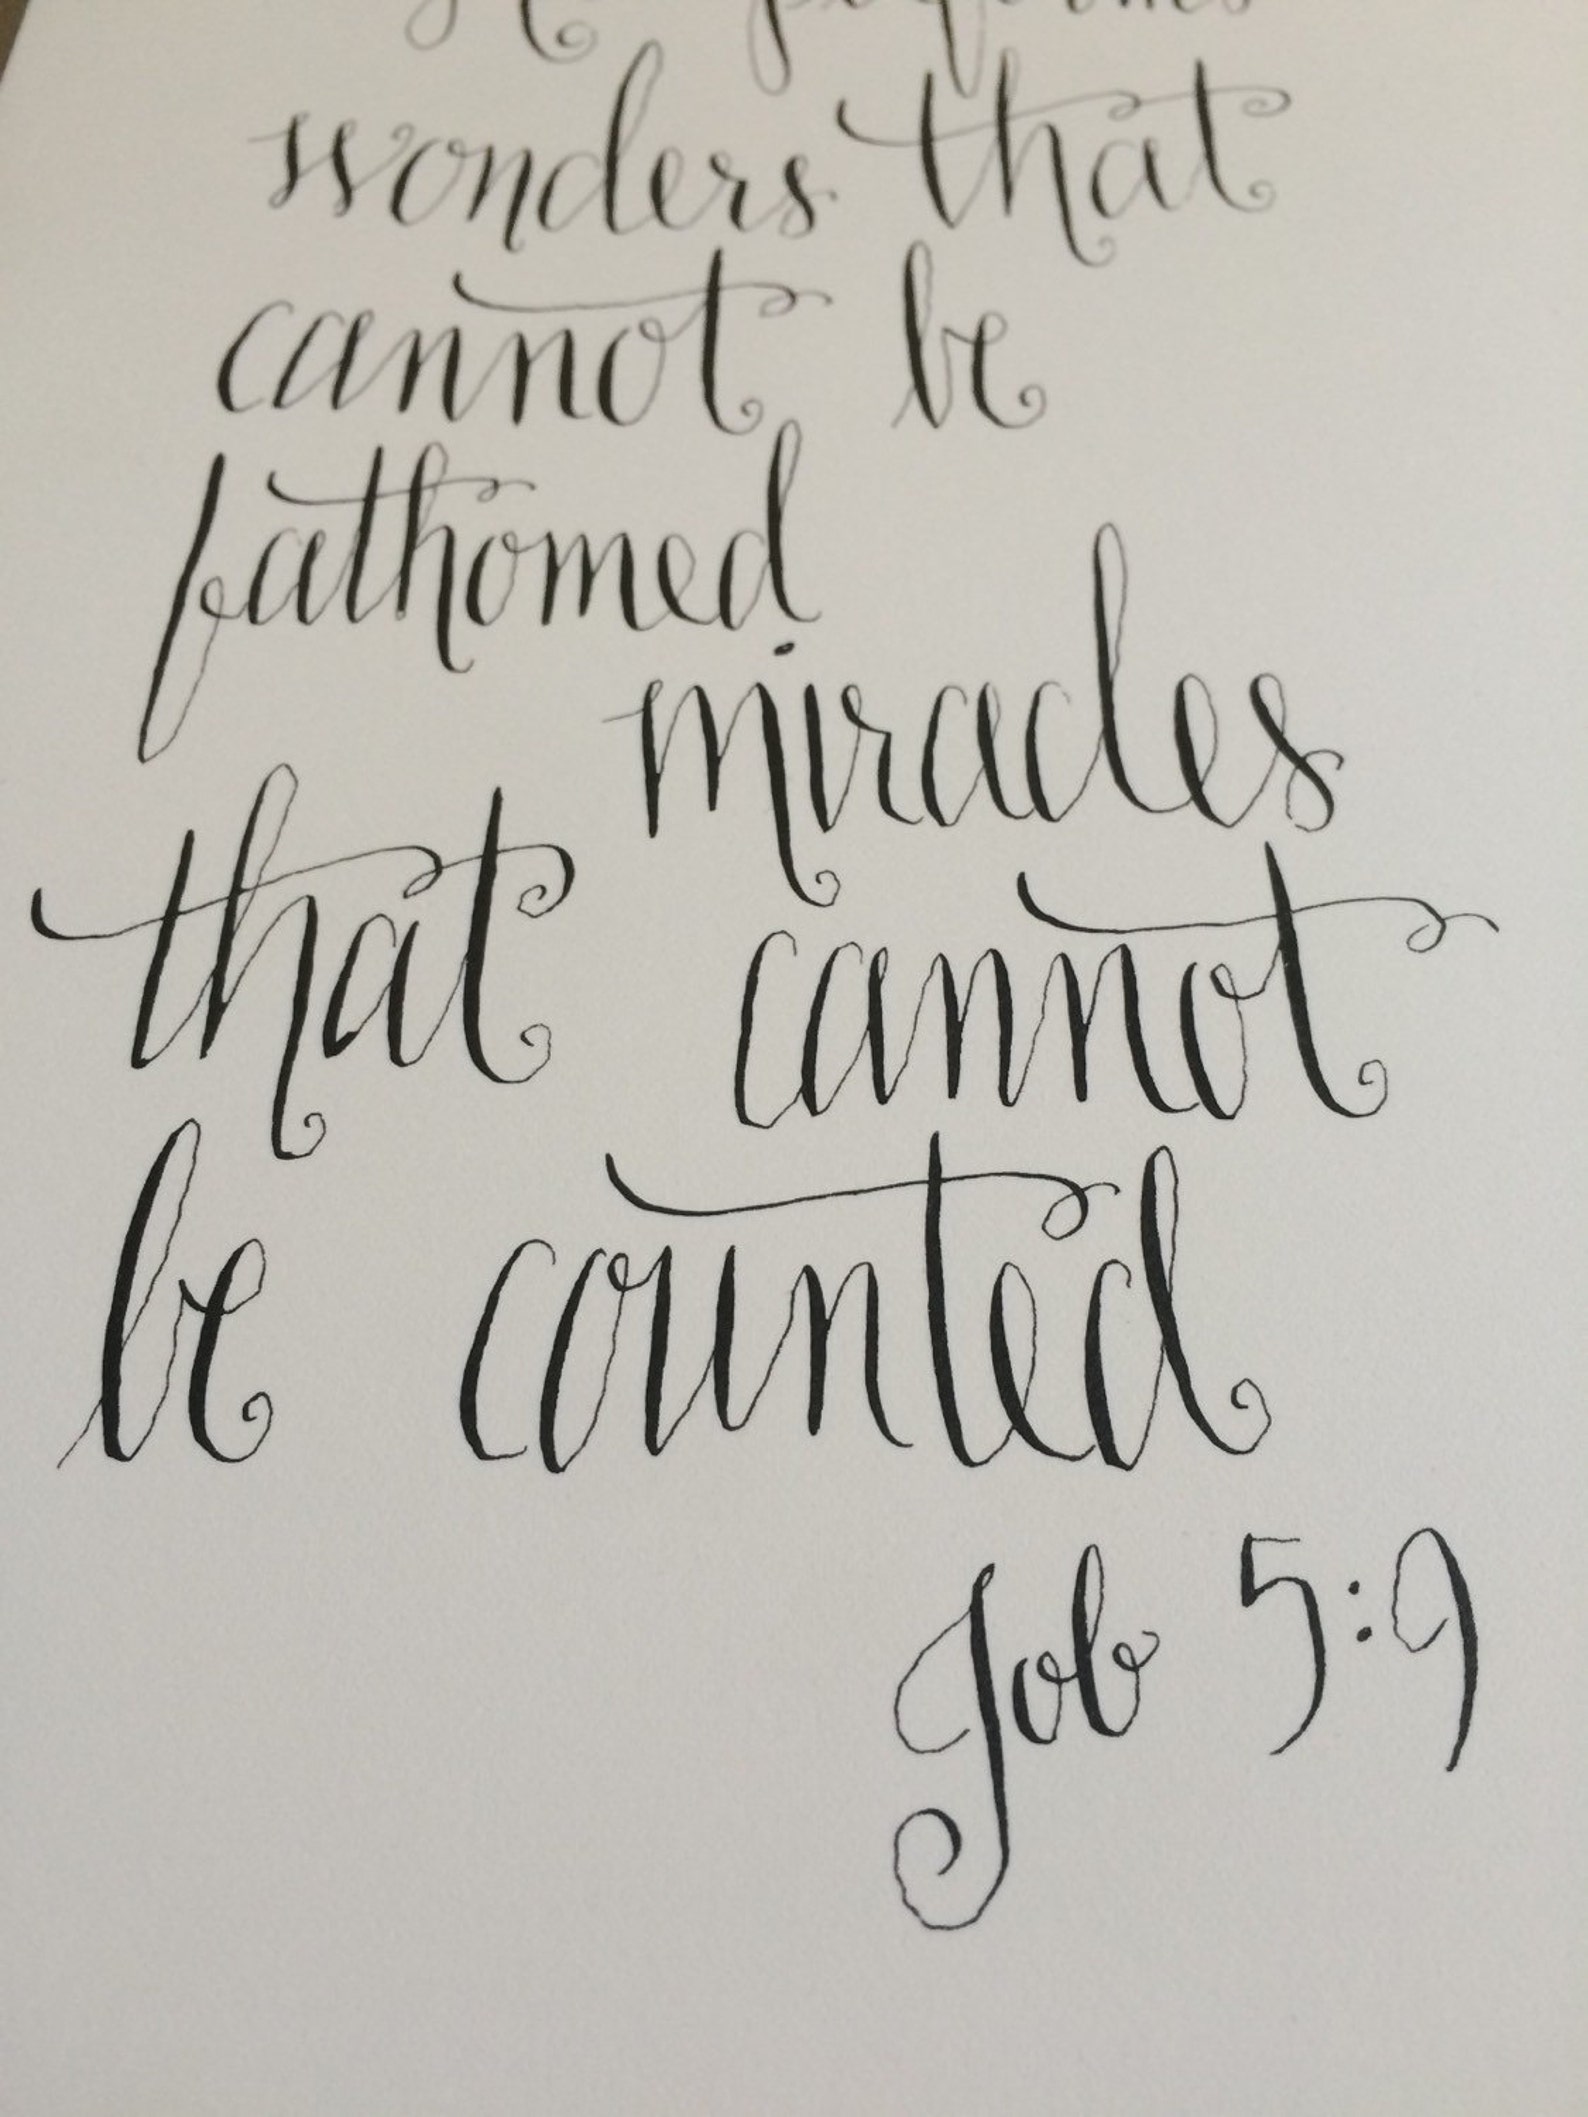 He performs
wonders that
cannot be
fathomed
miracles
that cannot
be counted
Job 5:9